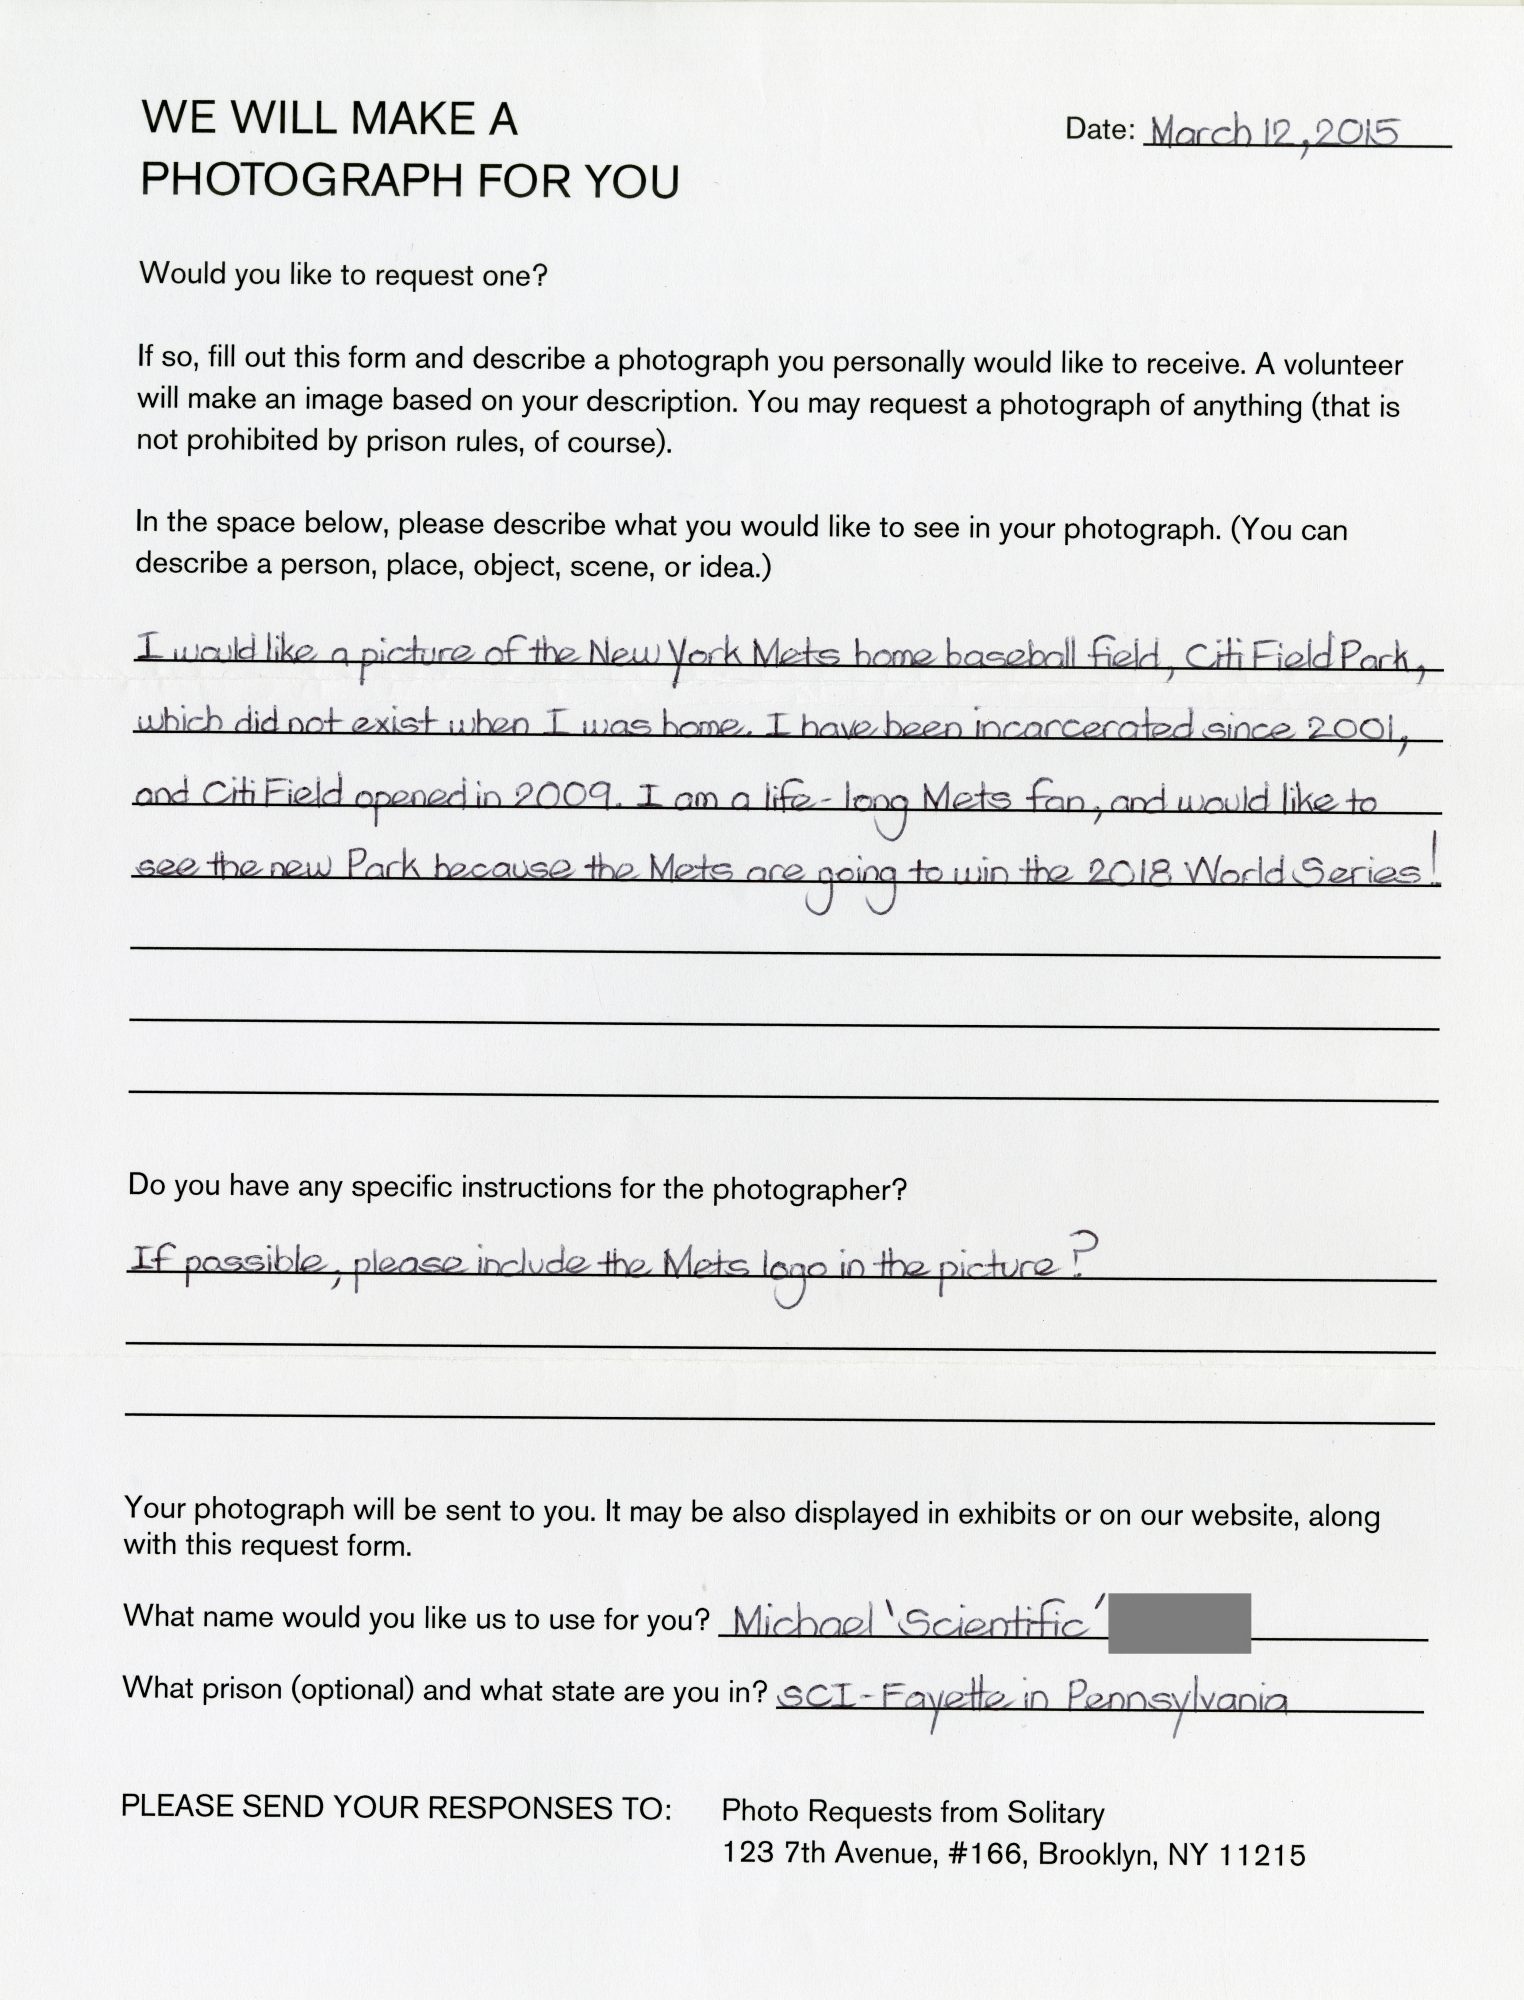 WE WILL MAKE A
PHOTOGRAPH FOR YOU
Date: March 12, 2015
Would you like to request one?
If so, fill out this form and describe a photograph you personally would like to receive. A volunteer
will make an image based on your description. You may request a photograph of anything (that is
not prohibited by prison rules, of course).
In the space below, please describe what you would like to see in your photograph. (You can
describe a person, place, object, scene, or idea.)
I would like a picture of the New York Mets home baseball field, Citi Field Park,
which did not exist when I was home. I have been incarcerated since 2001,
and Citi Field opened in 2009. I am a life-long Mets fan, and would like to
see the new Park because the Mets are going to win the 2018 World Series!
Do you have any specific instructions for the photographer?
If possible, please include the Mets logo in the picture?
Your photograph will be sent to you. It may be also displayed in exhibits or on our website, along
with this request form.
What name would you like us to use for you? Michael 'Scientific'
What prison (optional) and what state are you in? SCI-Fayette in Pennsylvania
PLEASE SEND YOUR RESPONSES TO: Photo Requests from Solitary
123 7th Avenue, #166, Brooklyn, NY 11215